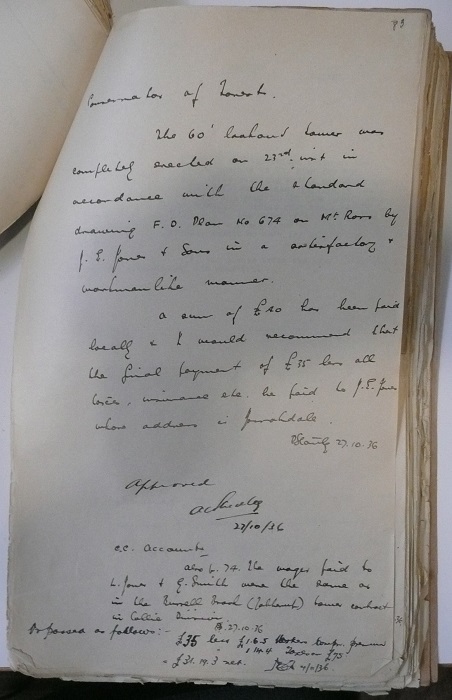 93
Conservator of Forests.
The 60' lookout tower was
completely erected on 23rd inst in
accordance with the standard
drawing F.D. Plan No 674 on Mt Ross by
J.E. Jones & Sons in a satisfactory &
workmanlike manner.
A sum of £40 has been paid
locally & I would recommend that
the final payment of £35 less all
taxes, insurance etc. be paid to J.E. Jones
whose address is Jarrahdale.
27.10.36
Approved
27/10/36
c.c. Accounts
also L. 74. The wages paid to
L. Jones & G. Smith were the same as
in the Brook tower contract
in Collie Division
27.10.36
Passed as follows:-
£35 less £1.6.5 Workers comp. premium
1.14.4 Tax on £75
= £31.19.3